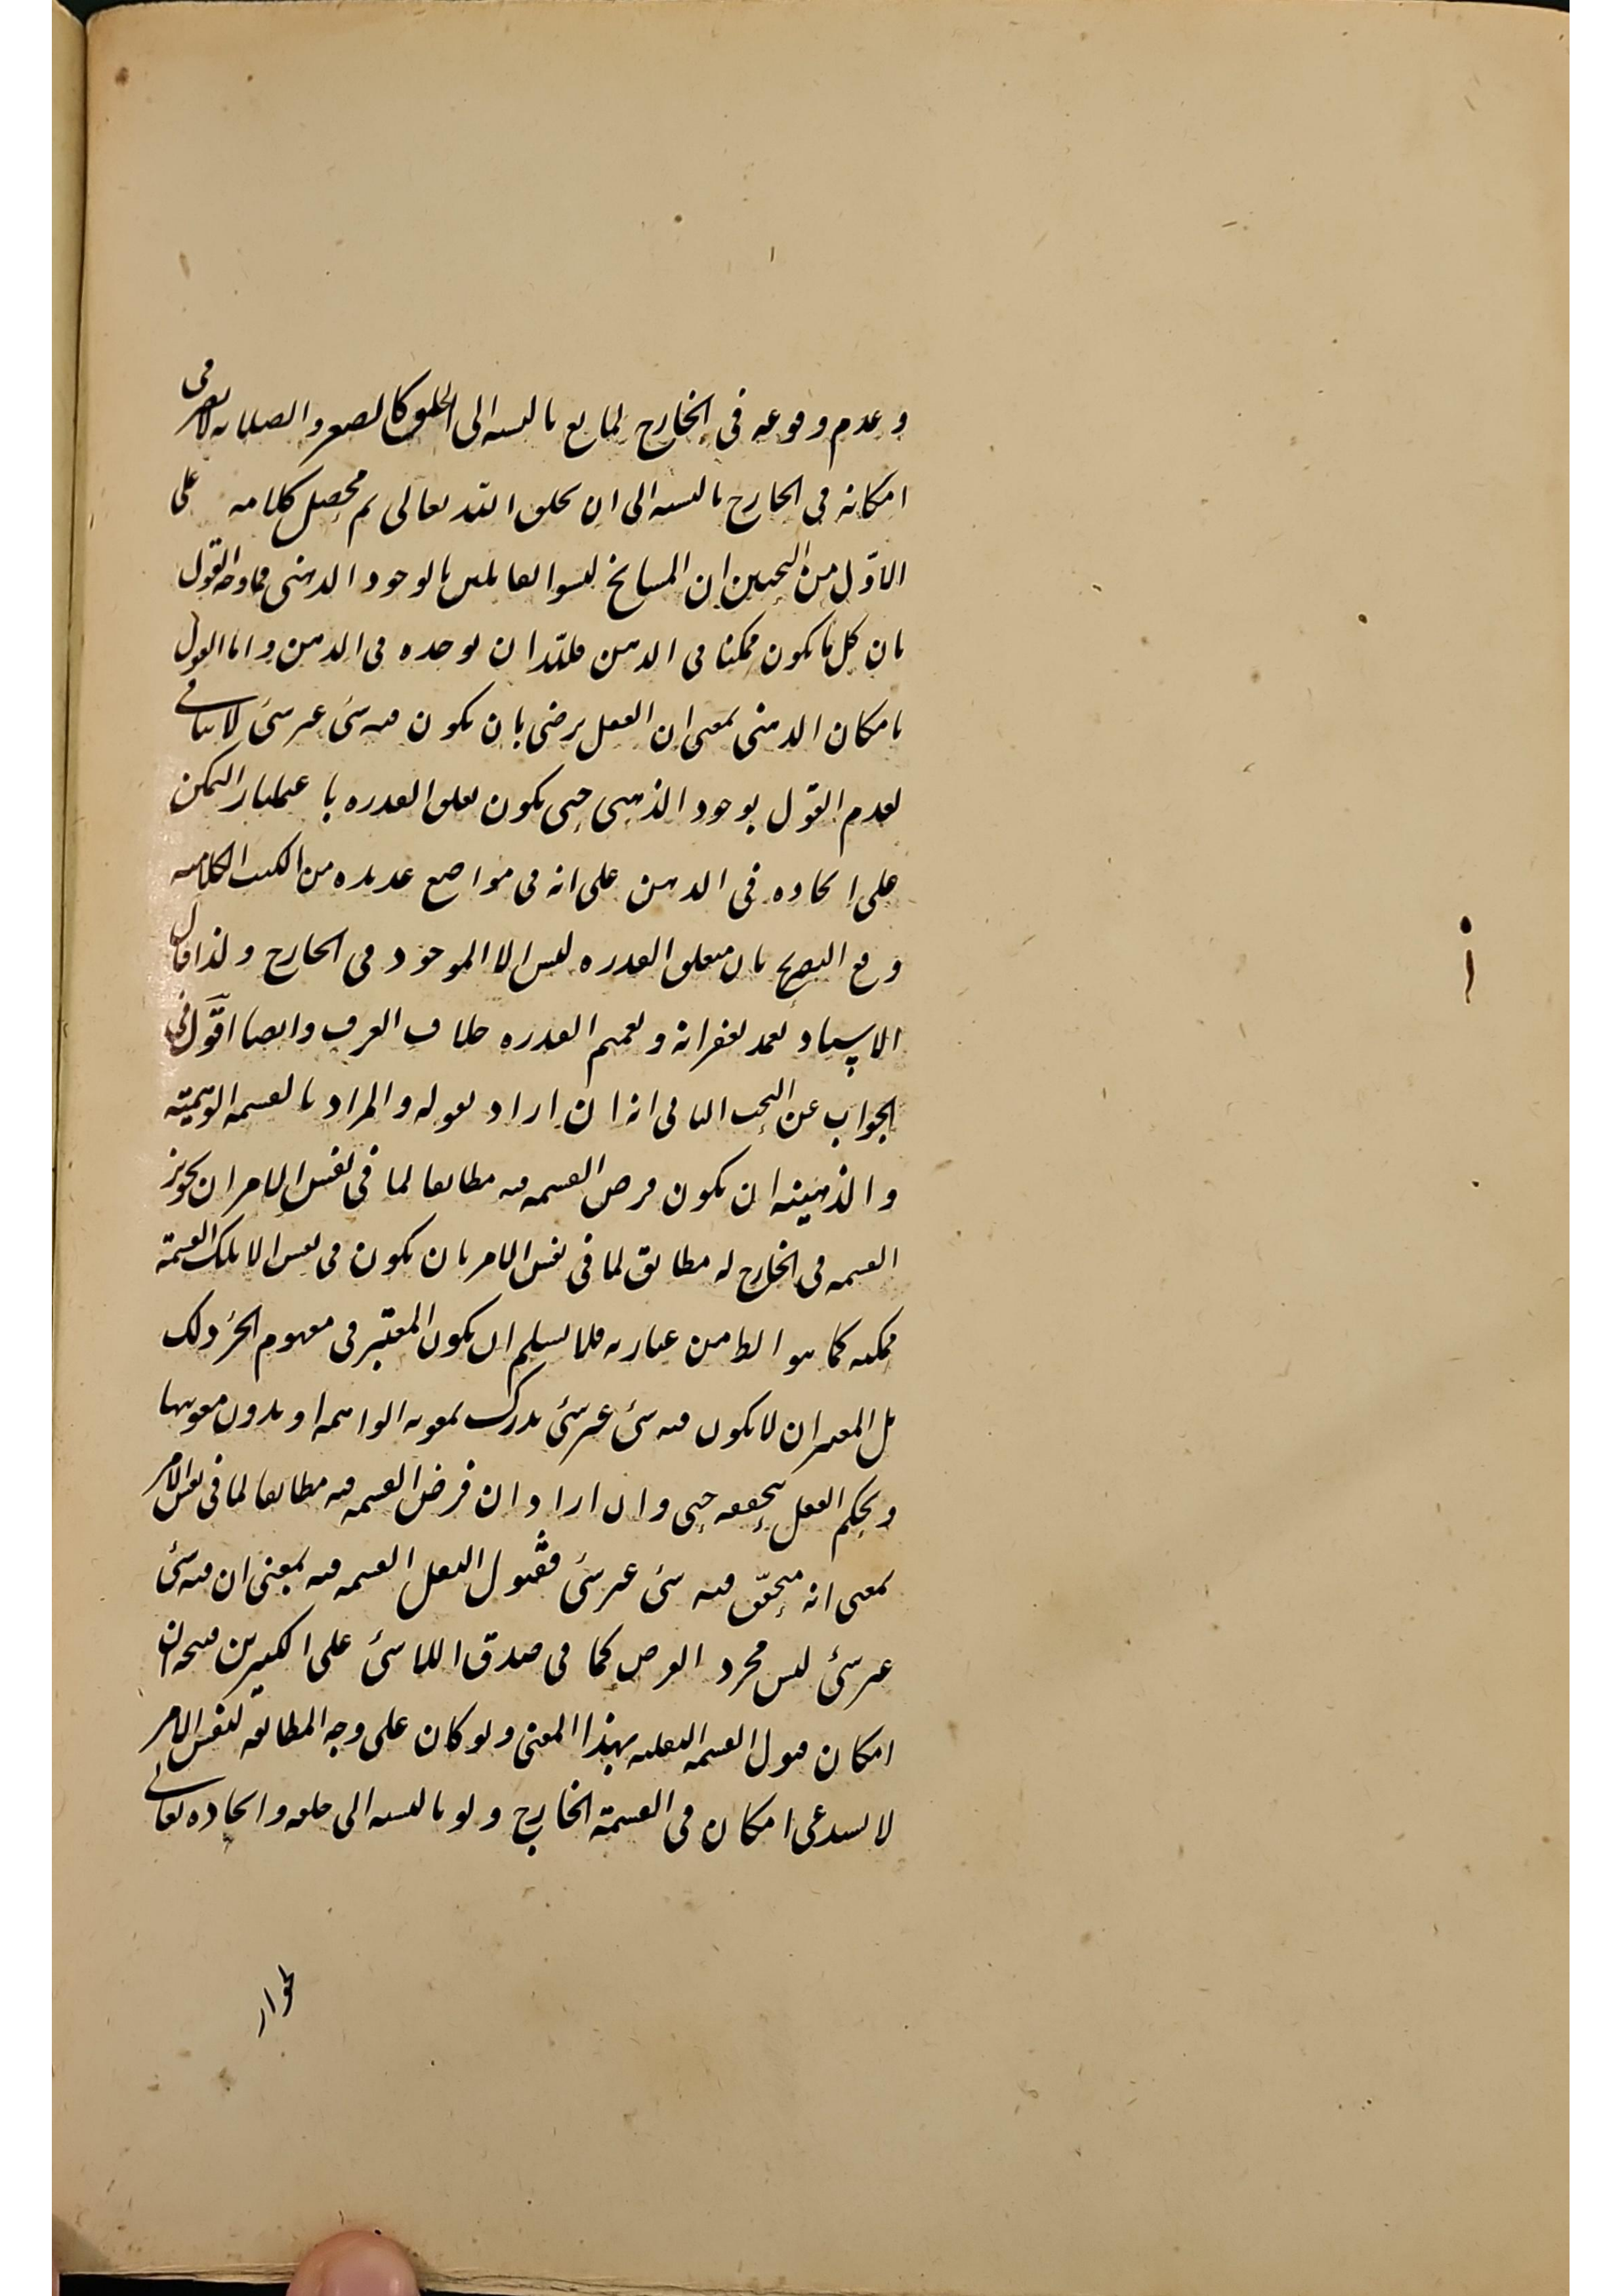 وعدم وقوعه في الخارج لمانع بالنسبة الى الخلق كالصغر والصلابة لا يضر في
امكانه في الخارج بالنسبة الى ان يخلق الله تعالى ثم محصل كلامه على
الاول من البحثين ان المشايخ ليسوا بقائلين بالوجود الذهني فما وجه القول
بان كل ما يكون ممكنا في الذهن فلله ان يوجده في الذهن واما القول
بامكان الذهني بمعنى ان العقل يرضى بان يكون فيه شئ غير شئ لا ينافي
لعدم القول بوجود الذهني حتى يكون تعلق القدرة باعتبار التمكن
على ايجاده في الذهن على انه في مواضع عديده من الكتب الكلاميه
وقع التصريح بان متعلق القدرة ليس الا الموجود في الخارج ولذا قال
الاستاد بغفرانه وتعميم القدرة خلاف العرف وايضا اقول في
الجواب عن البحث الثاني انه ان اراد بقوله والمراد بالقسمة الوهمية
والذهنية ان يكون فرض القسمة فيه مطابقا لما في نفس الامر ان تجويز
القسمة في الخارج له مطابق لما في نفس الامر بان يكون في نفس الا تلك القسمة
ممكنة كما هو الظ من عبارته فلا نسلم ان يكون المعتبر في مفهوم الجزء ذلك
بل المعتبر ان لا يكون فيه شئ غير شئ يدرك بمعونة الواهمة او بدون معونتها
ويحكم العقل بتحققه حتى وان اراد ان فرض القسمة فيه مطابقا لما في نفس الامر
بمعنى انه متحقق فيه شئ غير شئ فقبول العقل القسمة فيه بمعنى ان فيه شئ
غير شئ ليس مجرد الفرض كما في صدق اللاشئ على الكثيرين فيتجه ان
امكان قبول القسمة العقلية بهذا المعنى ولو كان على وجه المطابقة لنفس الامر
لا يستدعي امكان في القسمة الخارج ولو بالنسبة الى خلقه وايجاده تعالى
لجواز